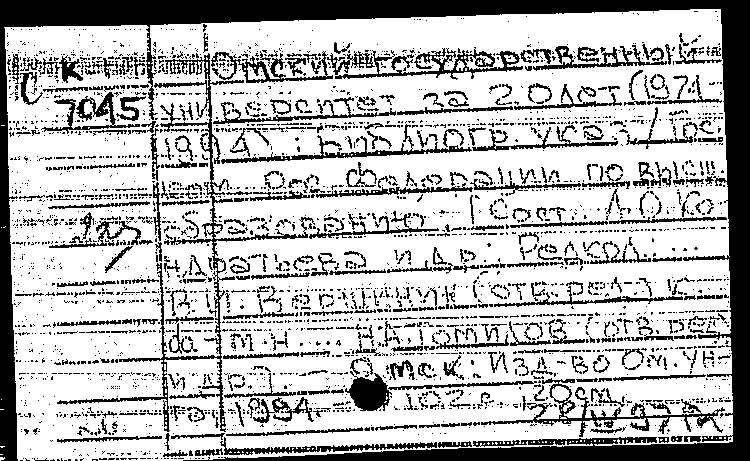 С К
7045
Омский государственный
университет за 20 лет (1974-
1994) : Библиогр. указ. / Гос.
ком. Рос. Федерации по высш.
образованию ; [Сост. Л.О. Ко-
ндратьева и др.; Редкол.: ...
В.И. Вершинин (отв. ред.) к.
... Н.А. Томилов (отв. ред)
и др.]. — Омск : Изд-во Ом. ун-
та, 1994. 102 с. ; 20 см.